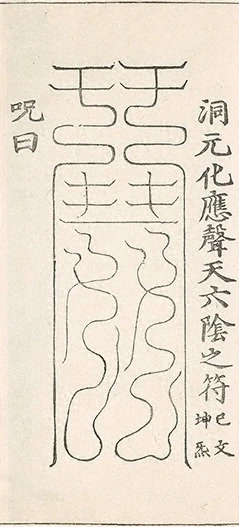 洞元化應聲天六陰之符
巳文
坤炁
呪曰